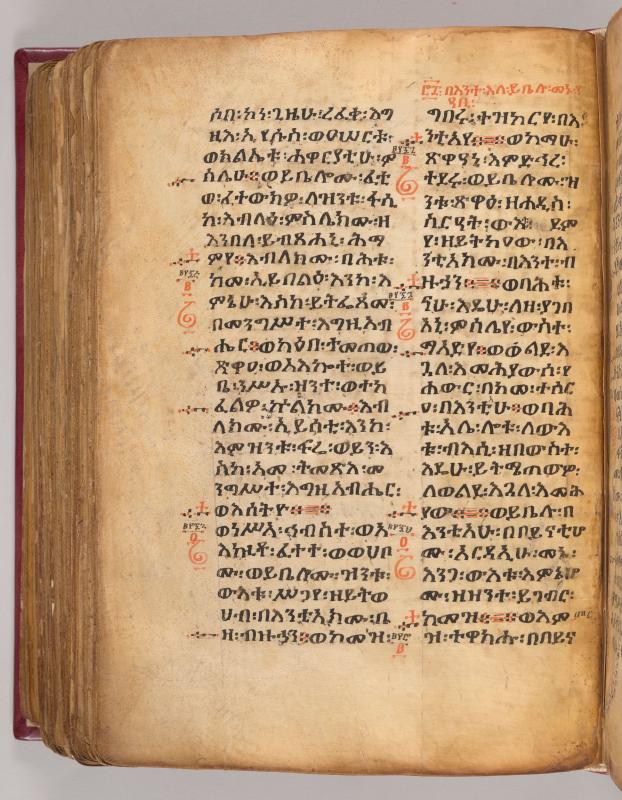 ሶበ፡ኮነ፡ጊዜሁ፡ረፈቀ፡እግ
ዚእ፡ኢየሱስ፡ወዐሠርቱ፡
ወክልኤቱ፡ሐዋርያቲሁ፡ም
ስሌሁ፡ወይቤሎሙ፡ፈቲ
ወ፡ፈተውክዎ፡ለዝንቱ፡ፋሲ
ካ፡እብላዕ፡ምስሌክሙ፡ዘ
እንበለ፡ይብጻሕኒ፡ሕማ
ምየ፡እብለክሙ፡በሕቱ፡
ከመ፡ኢይበልዕ፡እንከ፡እ
ምኔሁ፡እስከ፡ይትፌጸም፡
በመንግሥተ፡እግዚአብ
ሔር፡ወከዕበ፡ተመጠወ፡
ጽዋዐ፡ወአእኰተ፡ወይ
ቤ፡ንሥኡ፡ዝንተ፡ወተካ
ፈልዎ፡ኵልክሙ፡እብ
ለክሙ፡ኢይሰቲ፡እንከ፡
እምዝንቱ፡ፍሬ፡ወይን፡እ
ስከ፡አመ፡ትመጽእ፡መ
ንግሥተ፡እግዚአብሔር፡
ወእሰትዮ
ወነሥአ፡ኅብስተ፡ወአ
እኰተ፡ፈተተ፡ወወሀቦ
ሙ፡ወይቤሎሙ፡ዝንቱ፡
ውእቱ፡ሥጋየ፡ዘይትወ
ሀብ፡በእንቲአክሙ፡ቤ
ዛ፡ብዙኃን፡ወከመዝ፡
በእንተ፡እለ፡ይቤሉ፡መኑ፡
ግበሩ፡ተዝካርየ፡በእ
ንቲአየ፡ወከማሁ፡
ጽዋዓኒ፡እምድኅረ፡
ተደሩ፡ወይቤሎሙ፡ዝ
ንቱ፡ጽዋዕ፡ዘሐዲስ፡
ስርዓት፡ውእቱ፡ደም
የ፡ዘይትከዐው፡በእ
ንቲአክሙ፡በእንተ፡ብ
ዙኃን፡ወባሕቱ፡
ናሁ፡እዴሁ፡ለዘ፡ያገብ
አኒ፡ምስሌየ፡ውስተ፡
ማእድየ፡ወወልደ፡እ
ጓለ፡እመሕያውሰ፡የ
ሐውር፡በከመ፡ተሰር
ዐ፡በእንቲሁ፡ወባሕ
ቱ፡አሌ፡ሎቱ፡ለውእ
ቱ፡ብእሲ፡ዘበውስተ፡
እዴሁ፡ይትሜጠውዎ፡
ለወልደ፡እጓለ፡እመሕ
ያው፡ወይቤሉ፡በ
እንቲአሁ፡በበይናቲሆ
ሙ፡አርዳኢሁ፡መኑ፡
እንጋ፡ውእቱ፡እምኔሆ
ሙ፡ዘዝንተ፡ይገብር፡
ከመዝ፡ወእም
ዝ፡ተዋከሑ፡በበይና